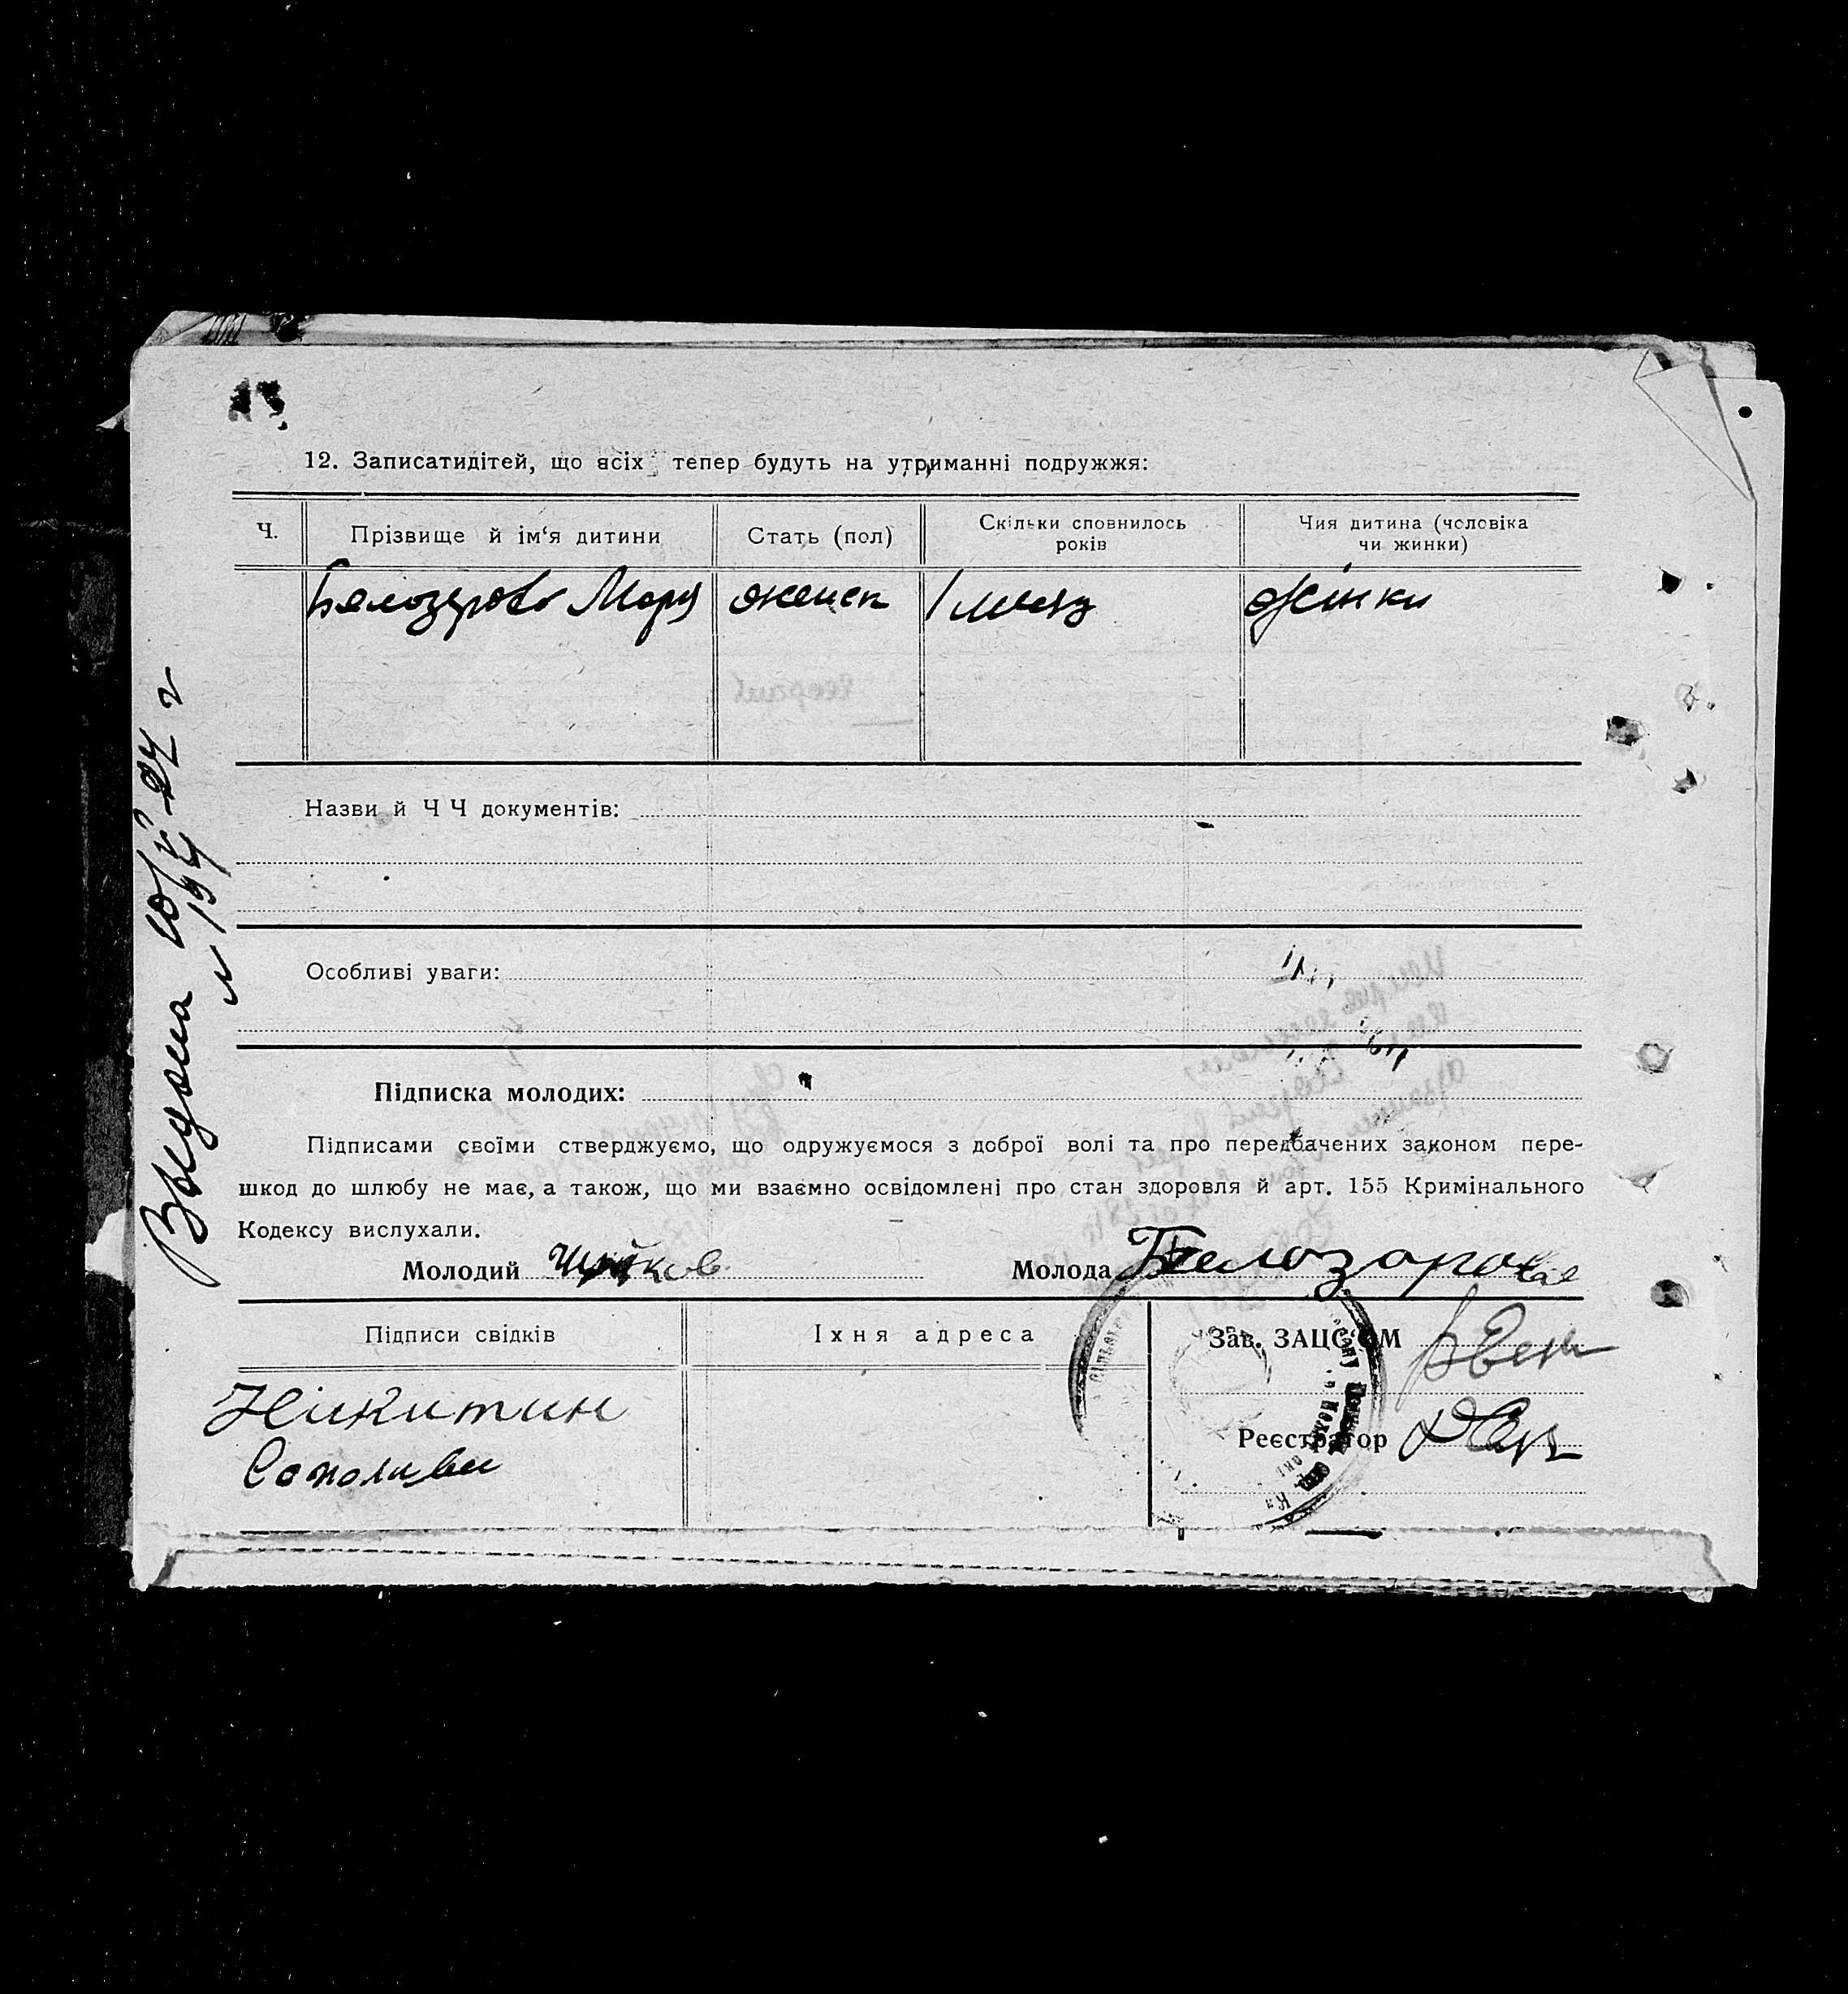 12. Записатидітей, що всіх тепер будуть на утриманні подружжя:
Ч.
Прізвище й ім'я дитини
Стать (пол)
Скільки сповнилось
років
Чия дитина (чоловіка
чи жинки)
Белозерова Мария
женск
1 месяц
Жінки
Назви й Ч Ч документів:
Особливі уваги:
Підписка молодих:
Підписами своїми стверджуємо, що одружуємося з доброї волі та про передбачених законом пере-
шкод до шлюбу не має, а також, що ми взаємно освідомлені про стан здоровля й арт. 155 Кримінального
Кодексу вислухали.
Молодий
Молода Белозарова
Підписи свідків
Їхня адреса
Зав. ЗАЦС'ОМ
Никитин
Реєстратор
Выдана 10/